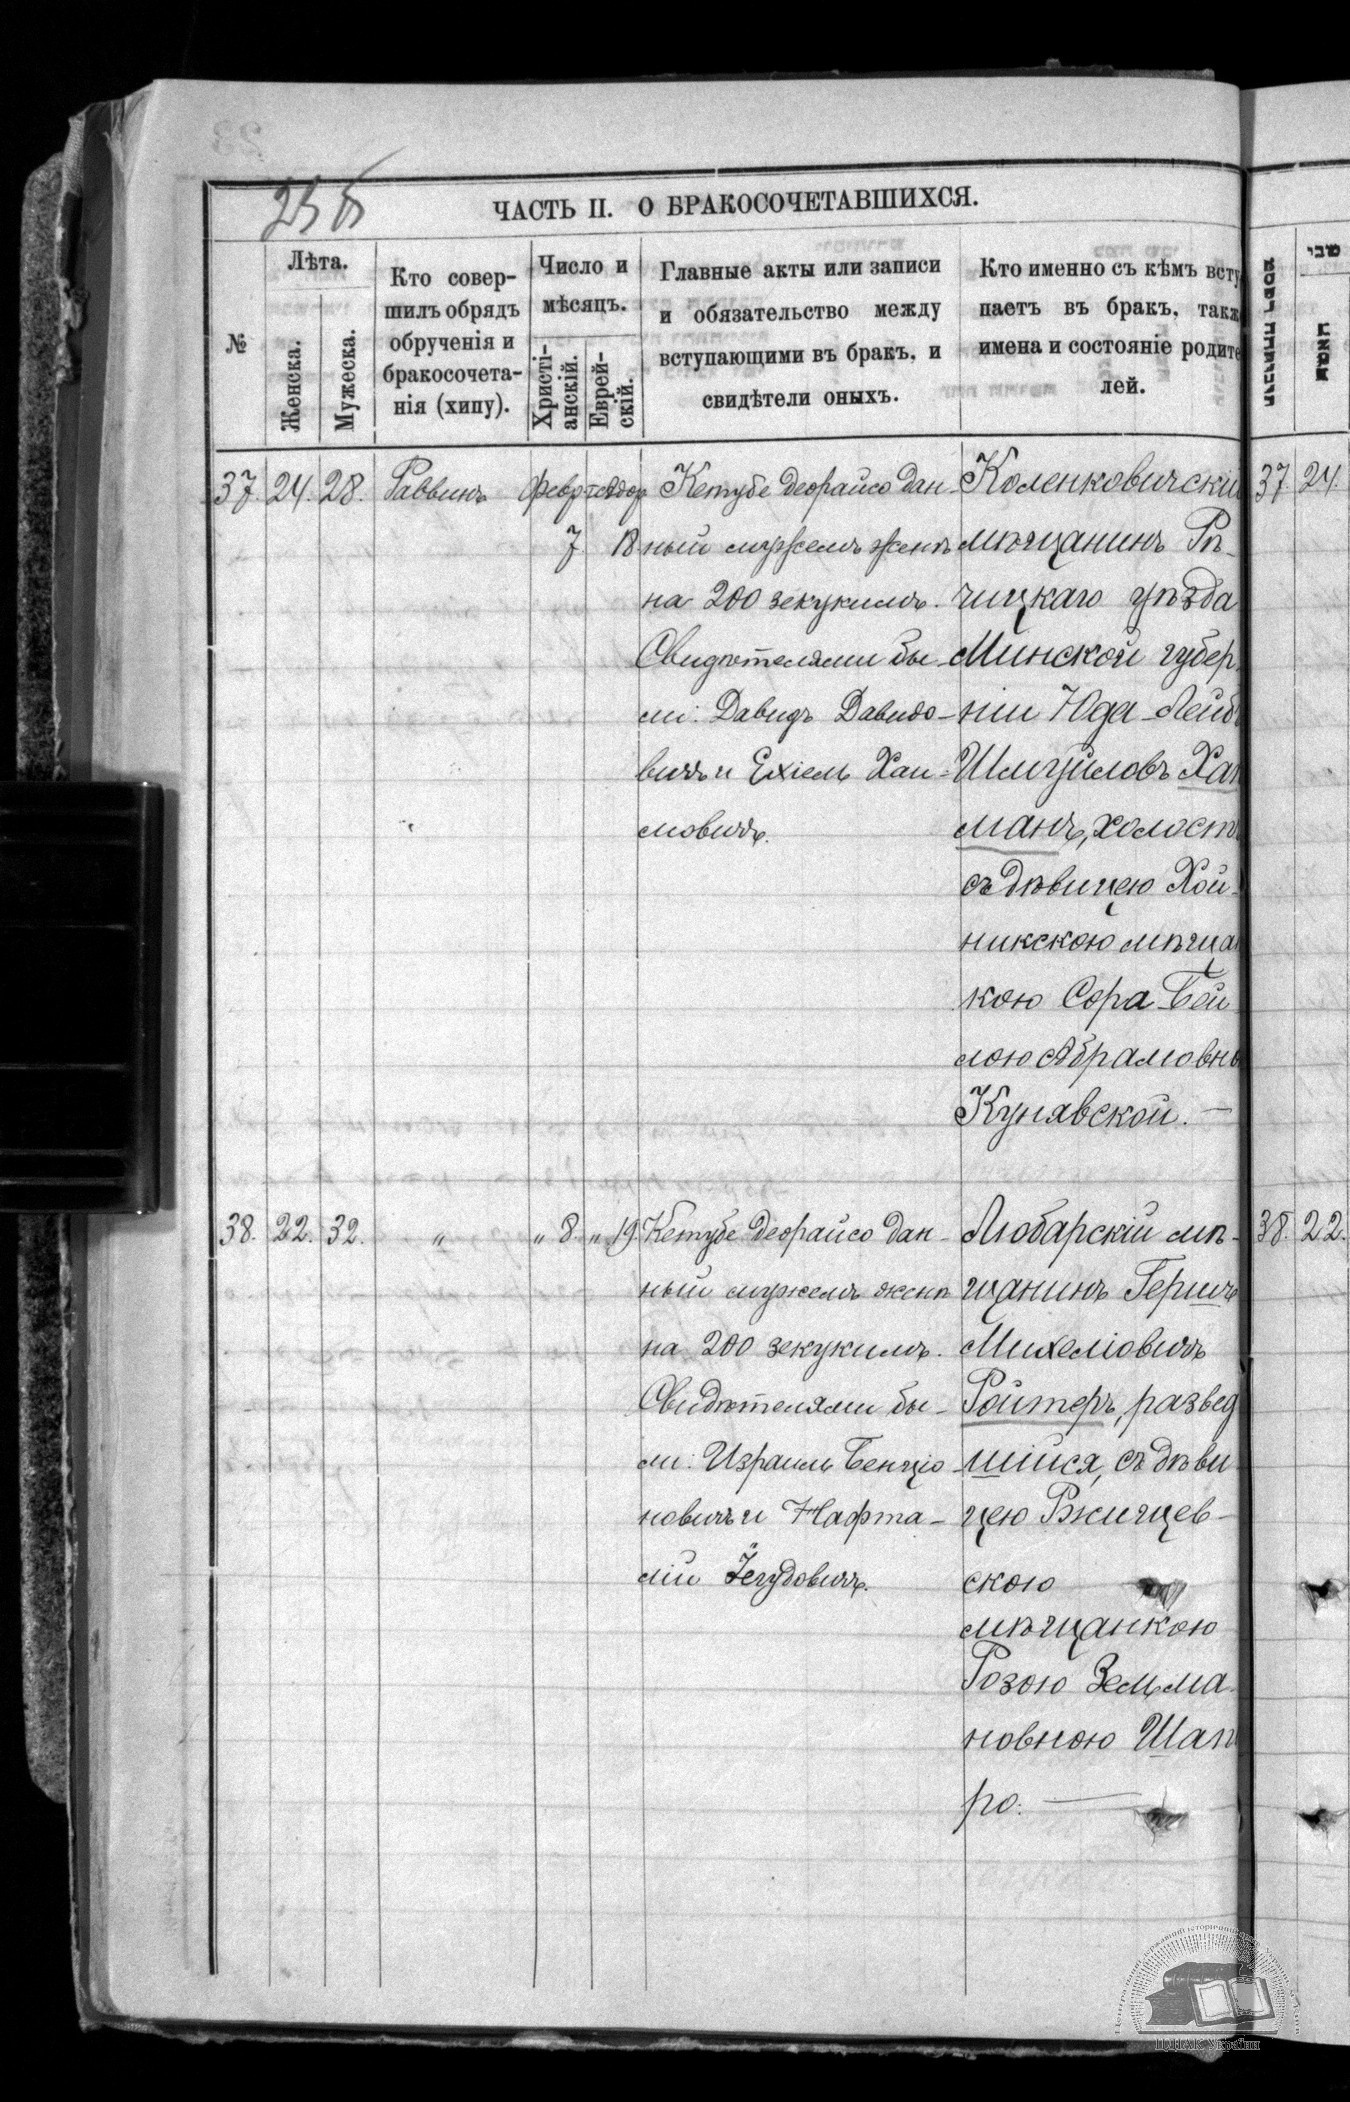 23б
ЧАСТЬ II. О БРАКОСОЧЕТАВШИХСЯ.
№
Лѣта.
Женска.
Мужеска.
Кто совер-
шилъ обрядъ
обрученія и
бракосочета-
нія (хипу).
Число и
мѣсяцъ.
Христі-
анскій.
Еврей-
скій.
Главные акты или записи
и обязательство между
вступающими въ бракъ, и
свидѣтели оныхъ.
Кто именно съ кѣмъ всту
паетъ въ бракъ, такж
имена и состояніе родите
лей.
37. 24. 28. Раввинъ Февр
7 18
Кетубе деорайсо дан-
ный мужемъ женѣ
на 200 зекукимъ.
Свидѣтелями бы-
ли: Давидъ Давидо-
вичъ и Ехіель Хаи-
мовичъ.
Коленковичскій
мѣщанинъ Рѣ-
чицкаго уѣзда
Минской губер
ніи Юда-Лейбъ
Шмуйловъ Хай
манъ, холостъ
съ дѣвицею Хой-
никскою мѣща
кою Сора-Бей
лою Абрамовно
Кунявской. —
38. 22. 32. " " 8. " 19.
Кетубе деорайсо дан-
ный мужемъ женѣ
на 200 зекукимъ.
Свидѣтелями бы-
ли: Израиль Бенціо-
новичъ и Нафта-
лій Іегудовичъ.
Любарскій мѣ-
щанинъ Гершъ
Михеліовичъ
Ройтеръ, развед
шійся, съ дѣви
цею Ржищев-
скою
мѣщанкою
Розою Зельма
новною Шапи
ро. —
37 24.
38. 22.
ЦДІАК України